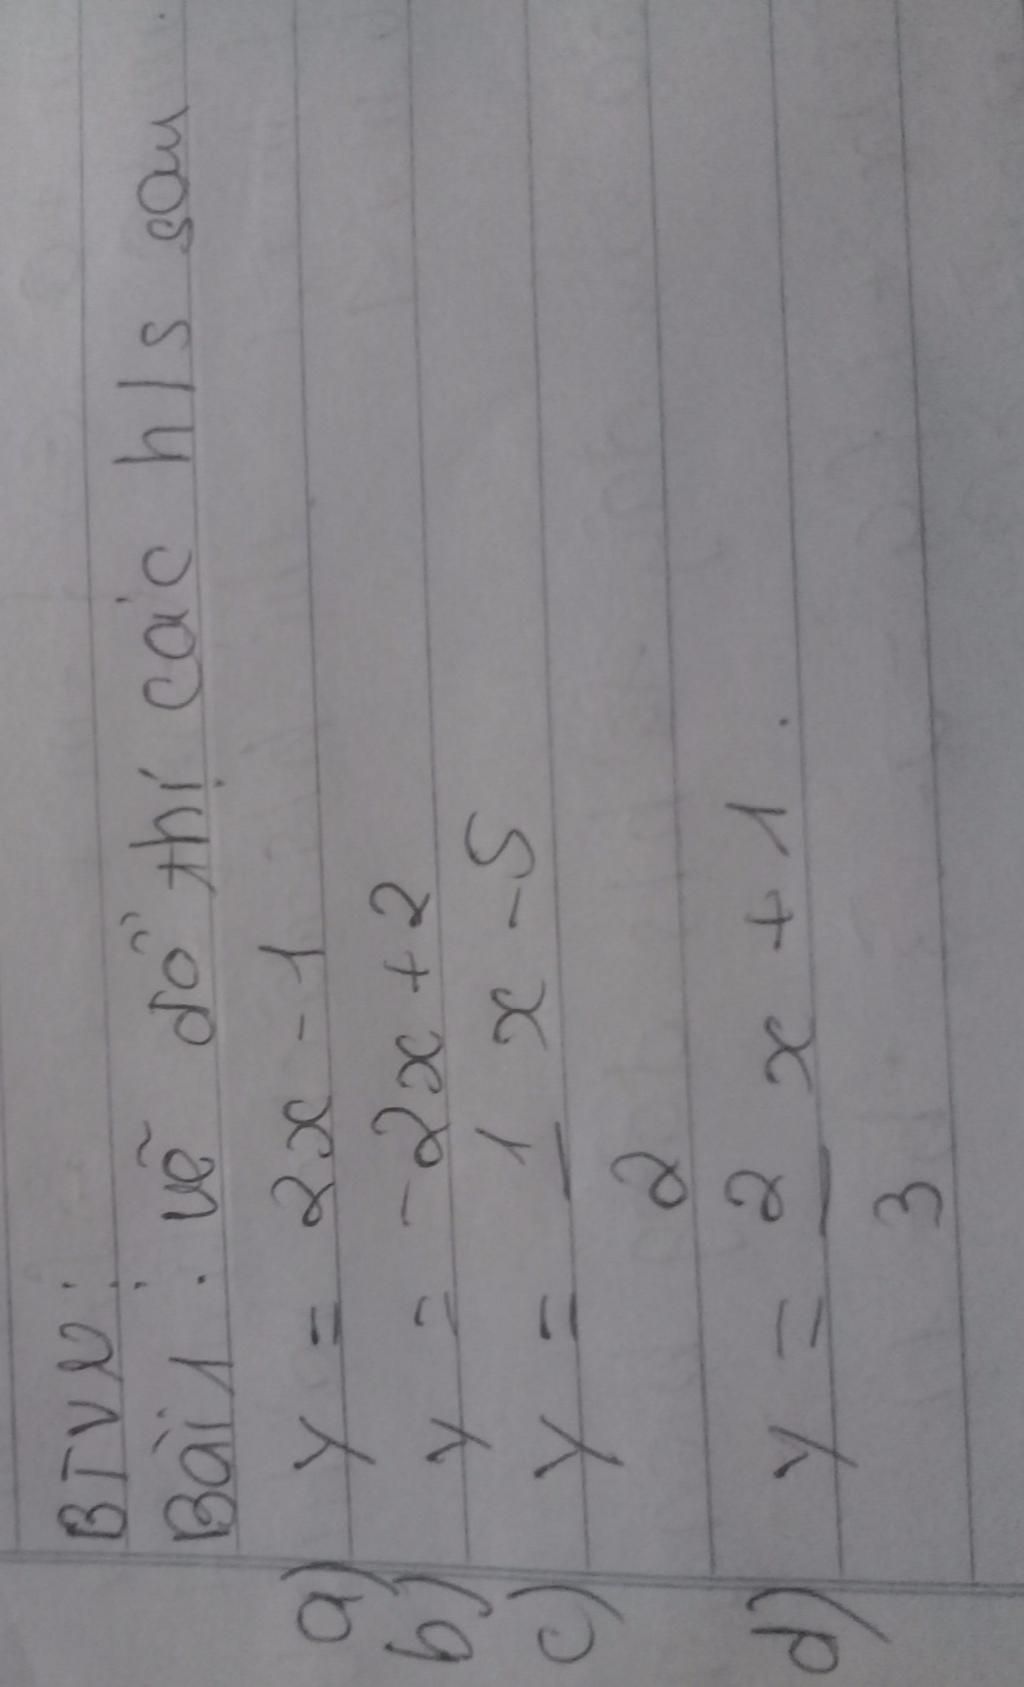 BTVN:
Bài 1: vẽ đồ thị các h/s sau
a) y = 2x - 1
b) y = -2x + 2
c) y = 1/2 x - 5
d) y = 2/3 x + 1.